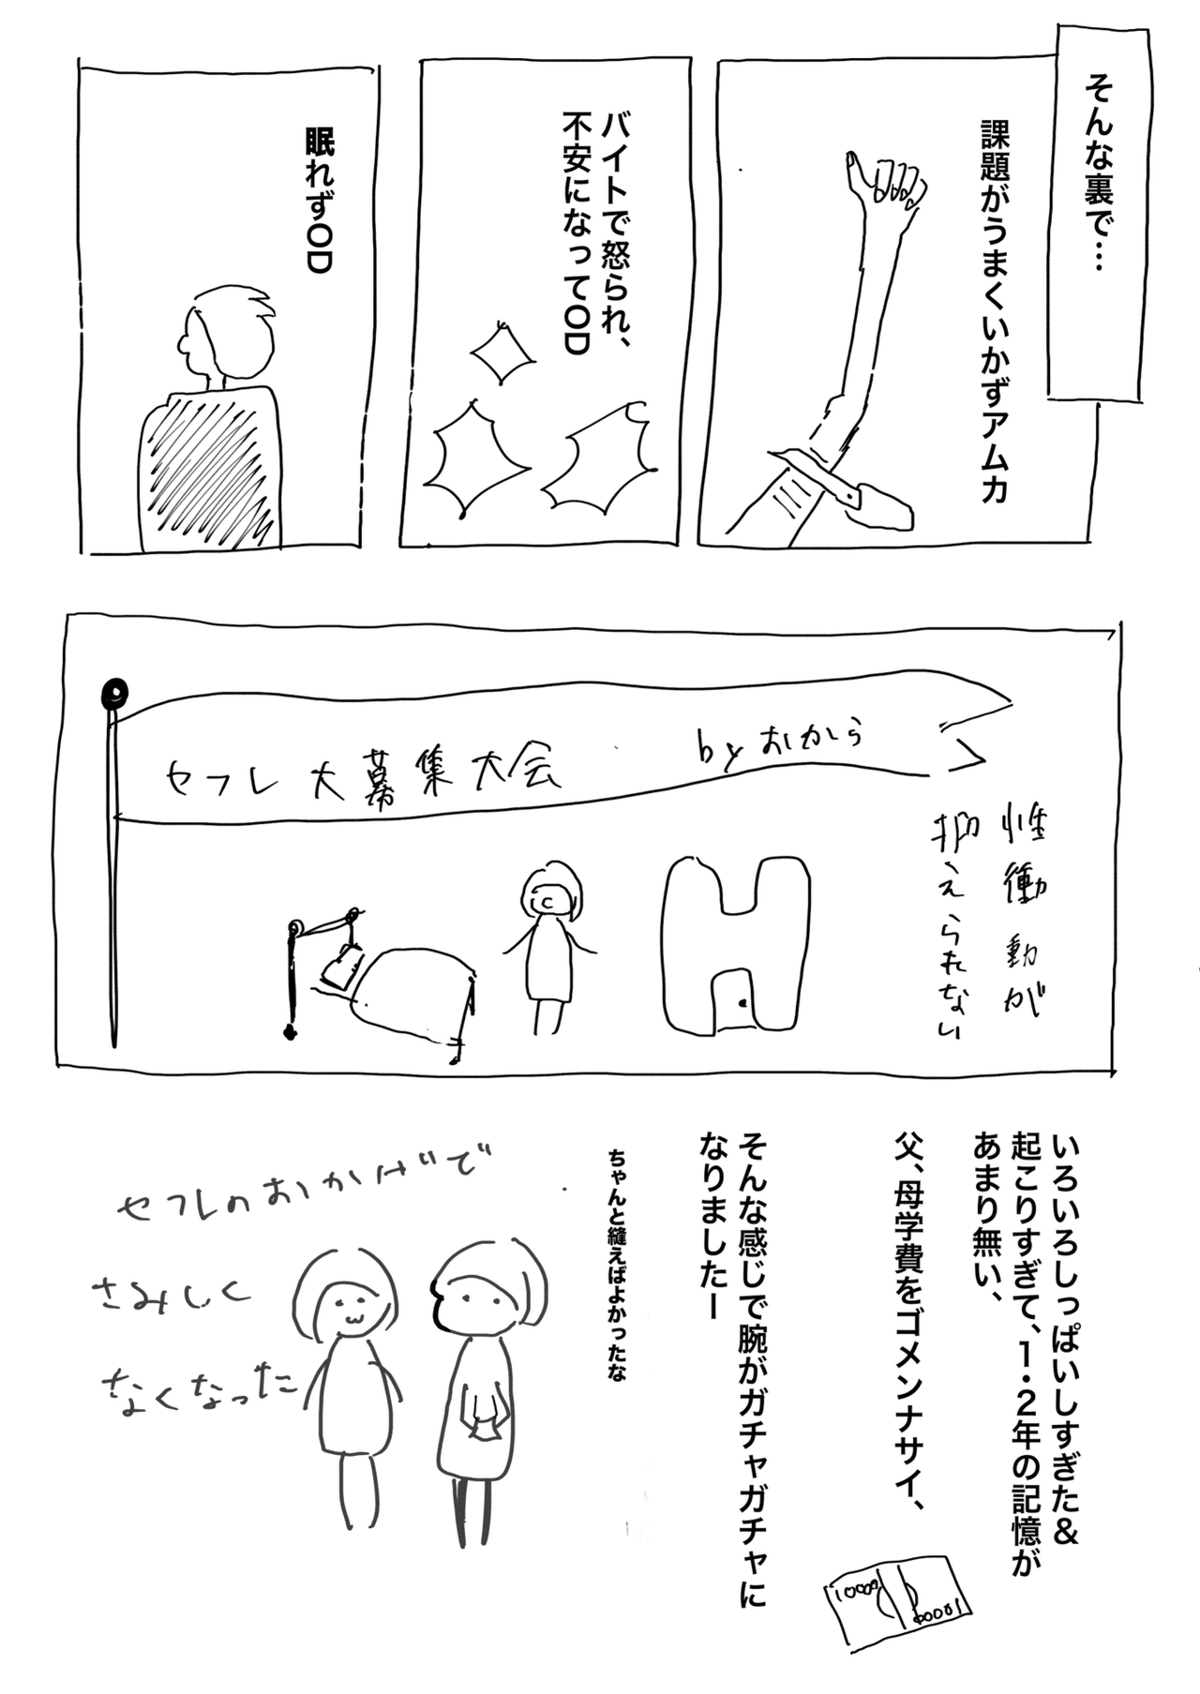 そんな裏で…
課題がうまくいかずアムカ
バイトで怒られ、
不安になってOD
眠れずOD
セフレ大募集大会 byおから
性衝動が
抑えられない
いろいろしっぱいしすぎた&
起こりすぎて、1・2年の記憶が
あまり無い、
父、母学費をゴメンナサイ、
10000
10000
そんな感じで腕がガチャガチャに
なりましたー
ちゃんと縫えばよかったな
セフレのおかげで
さみしく
なくなった